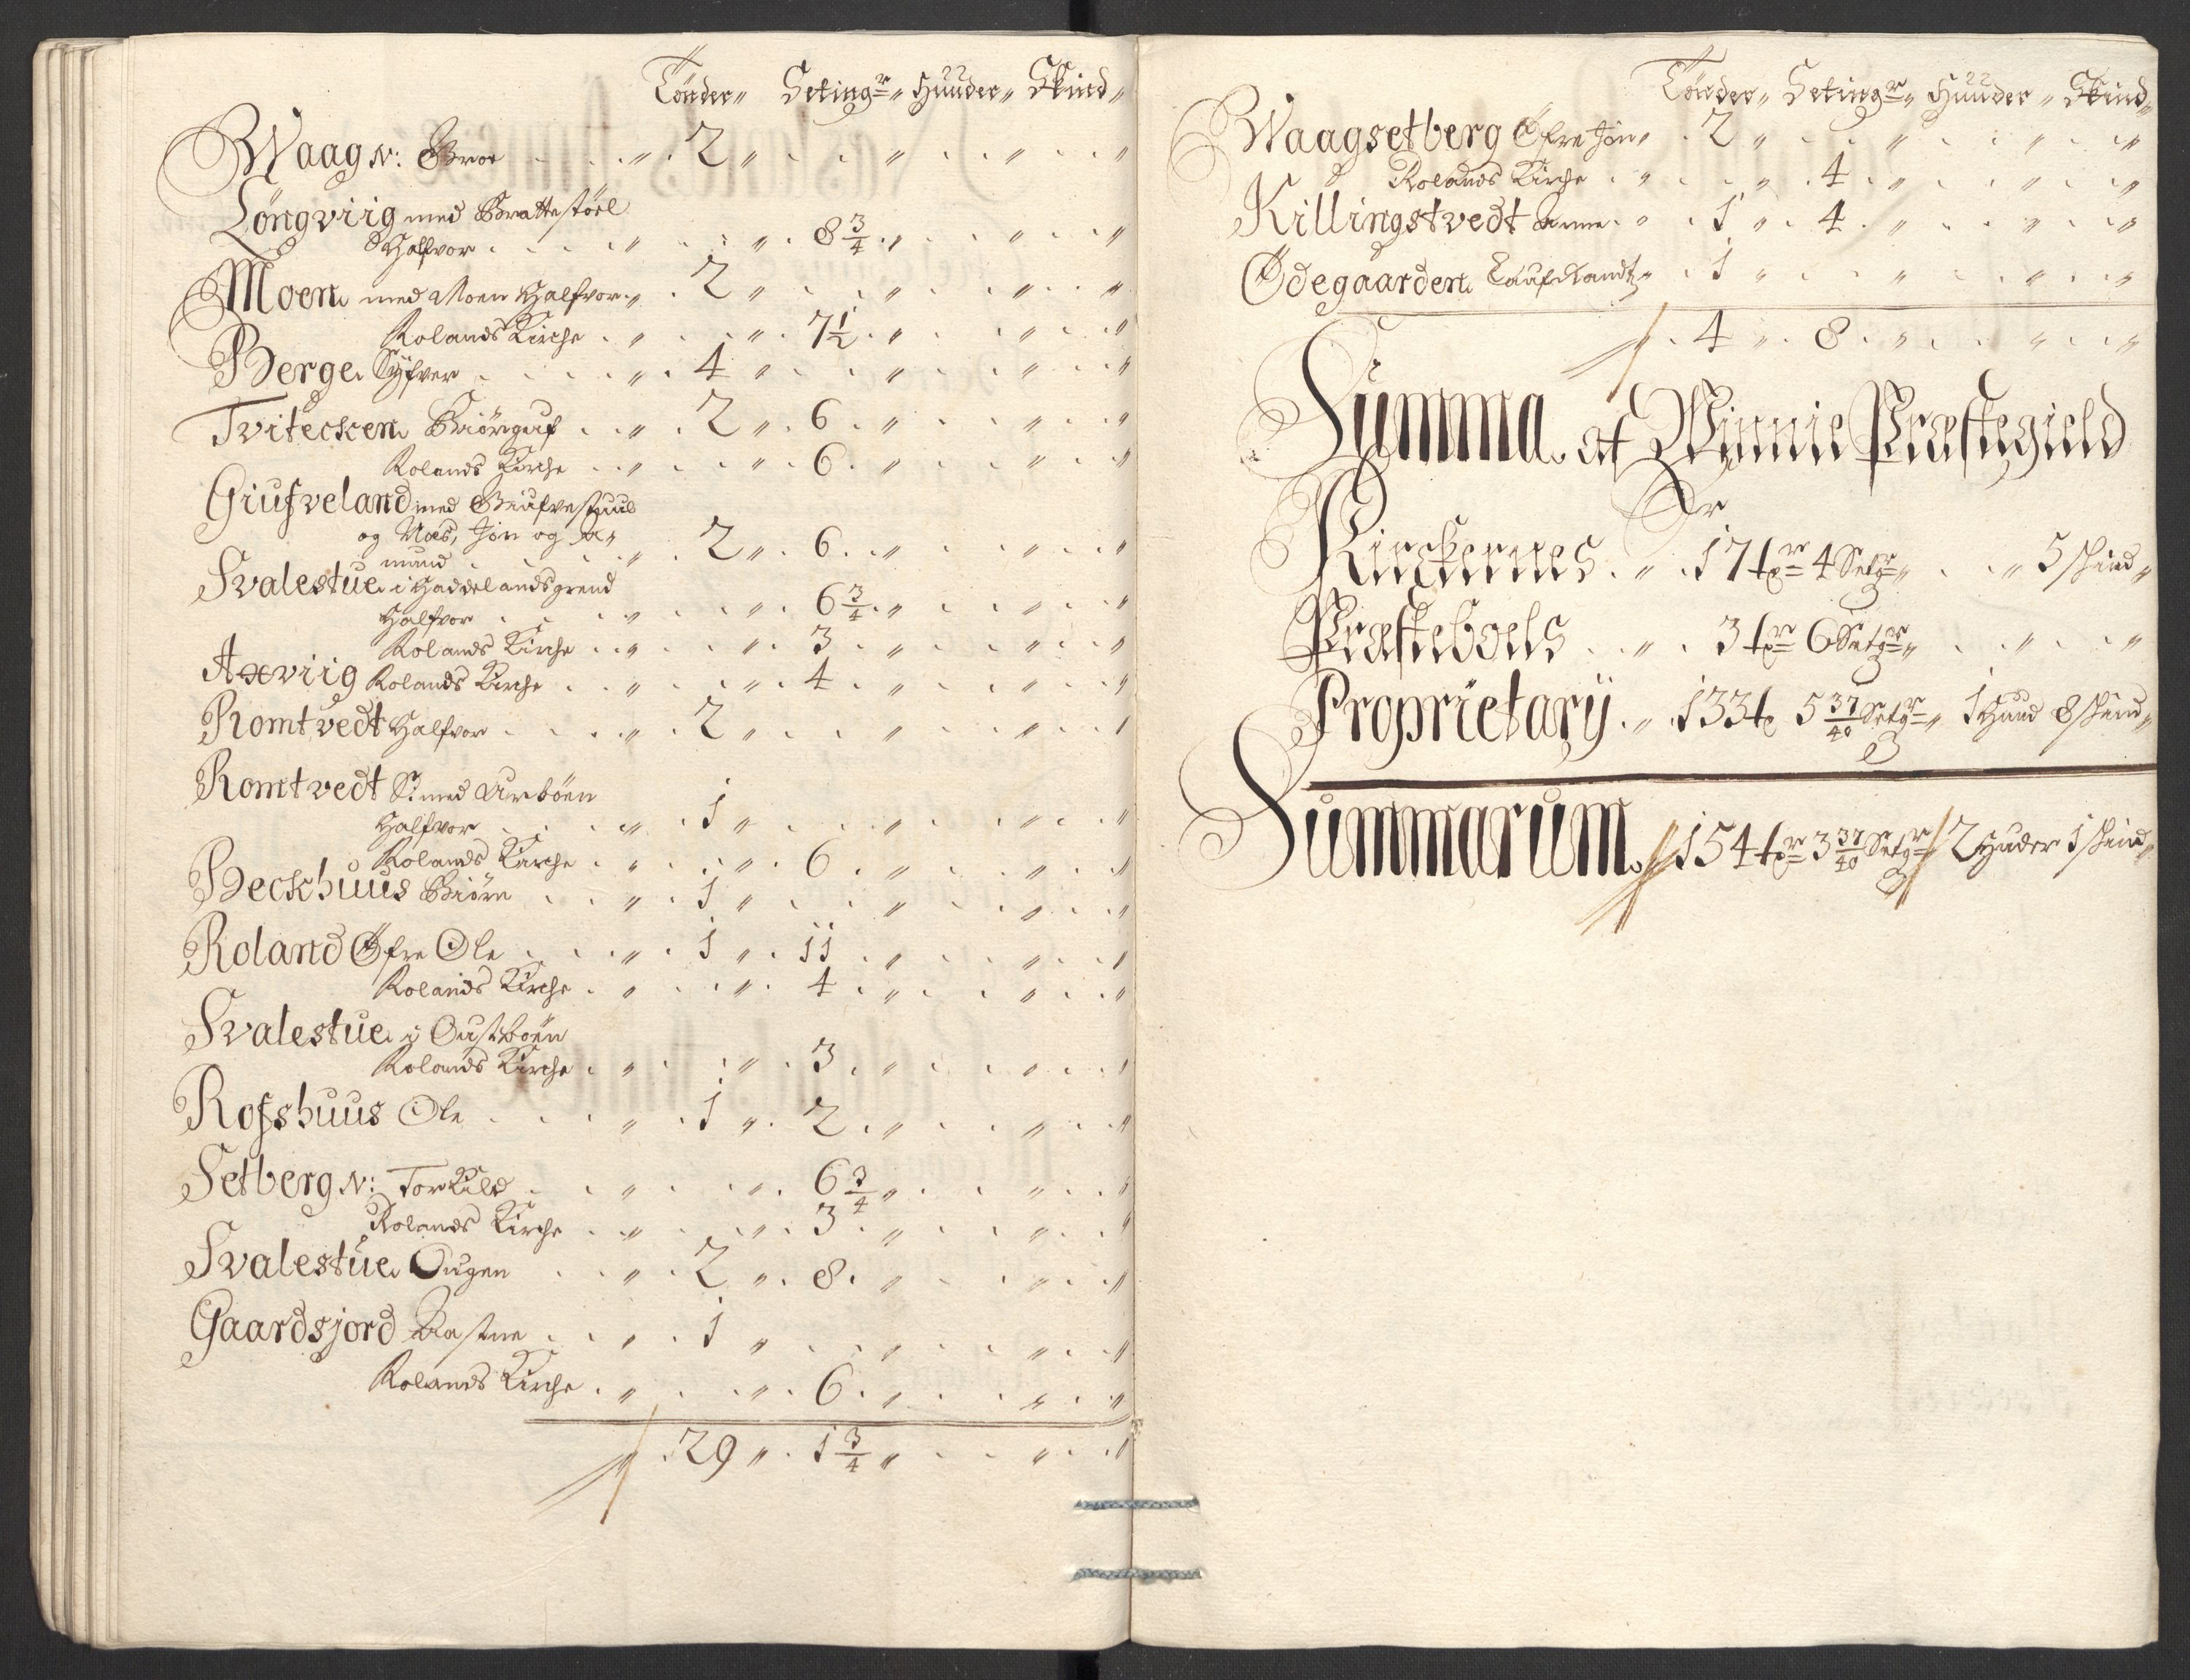 Tönder„ Setingr„ Huuder„ Skind„
Waag N: Groe . . . „ . 2 „ . . „ . . „ . . „
Löngviig med Brattestöel
Halfvor . . . . „ . . . „ . 8 3/4 . „ . . „ . . „
Moen med Moen Halfvor . „ . 2 „ . . „ . . „ . . „
Rolands Kirche . „ . . „ . 7 1/2 . „ . . „ . . „
Berge Syfver . . . . „ . 4 „ . . „ . . „ . . „
Tvitecken Biörguf . . „ . 2 „ . 6 . „ . . „ . . „
Rolands Kirche . . „ . . „ . 6 . „ . . „ . . „
Giufveland med Giufvestuul
og Næs, Jon og A„
mund . . . . „ . 2 „ . 6 . „ . . „ . . „
Svalestue i Haddelandsgrend
Halfvor . . . . „ . . „ . 6 3/4 . „ . . „ . . „
Rolands Kirche . . „ . . „ . 3 . „ . . „ . . „
Axviig Rolands Kirche . . „ . . „ . 4 . „ . . „ . . „
Romtvedt Halfvor . . . „ . 2 „ . . „ . . „ . . „
Romtvedt S: med Urböen
Halfvor . . . . „ . 1 „ . . „ . . „ . . „
Rolands Kirche . „ . . „ . 6 . „ . . „ . . „
Beckhuus Biörn . . „ . 1 „ . . „ . . „ . . „
Roland Øfre Ole . . . „ . 1 „ . 11 . „ . . „ . . „
Rolands Kirche . „ . . „ . 4 . „ . . „ . . „
Svalestue i Oustböen
Rolands Kirche . „ . . „ . 3 . „ . . „ . . „
Rofshuus Ole . . . „ . 1 „ . 2 . „ . . „ . . „
Setberg N: Torkild . . „ . . „ . 6 3/4 „ . . „ . . „
Rolands Kirche . . „ . . „ . 3 . „ . . „ . . „
Svalestue Ougen . . „ . 2 „ . 8 . „ . . „ . . „
Gaardsjord Aastne . . „ . 1 „ . . „ . . „ . . „
Rolands Kirche . „ . . „ . 6 . „ . . „ . . „
„ . 29 „ . 1 3/4 „ . . „ . . „
Tönder„ Setingr„ Huuder„ Skind„
Waagsetberg Øfre Jon„ . 2 „ . . „ . . „ . . „
Rolands Kirche . „ . . „ . 4 . „ . . „ . . „
Killingstvedt Anne . „ . 1 „ . 4 . „ . . „ . . „
Ødegaarden „ . 1 „ . . „ . . „ . . „
„ . 4 „ . 8 . „ . . „ . . „
Summa af Winnie Præstegield
Er
Kirckernes . „ . 17 tr 4 Setgr„ . . „ 5 skind„
Præsteboels . . „ . 3 tr 6 Setgr„ . . „ . . „
Proprietary . „ . 133 t 5 37/40 Setgr„ 1 Huud 8 skind„
Summarum „ 154 tr 3 37/40 Setgr 2 Huder 1 skind„